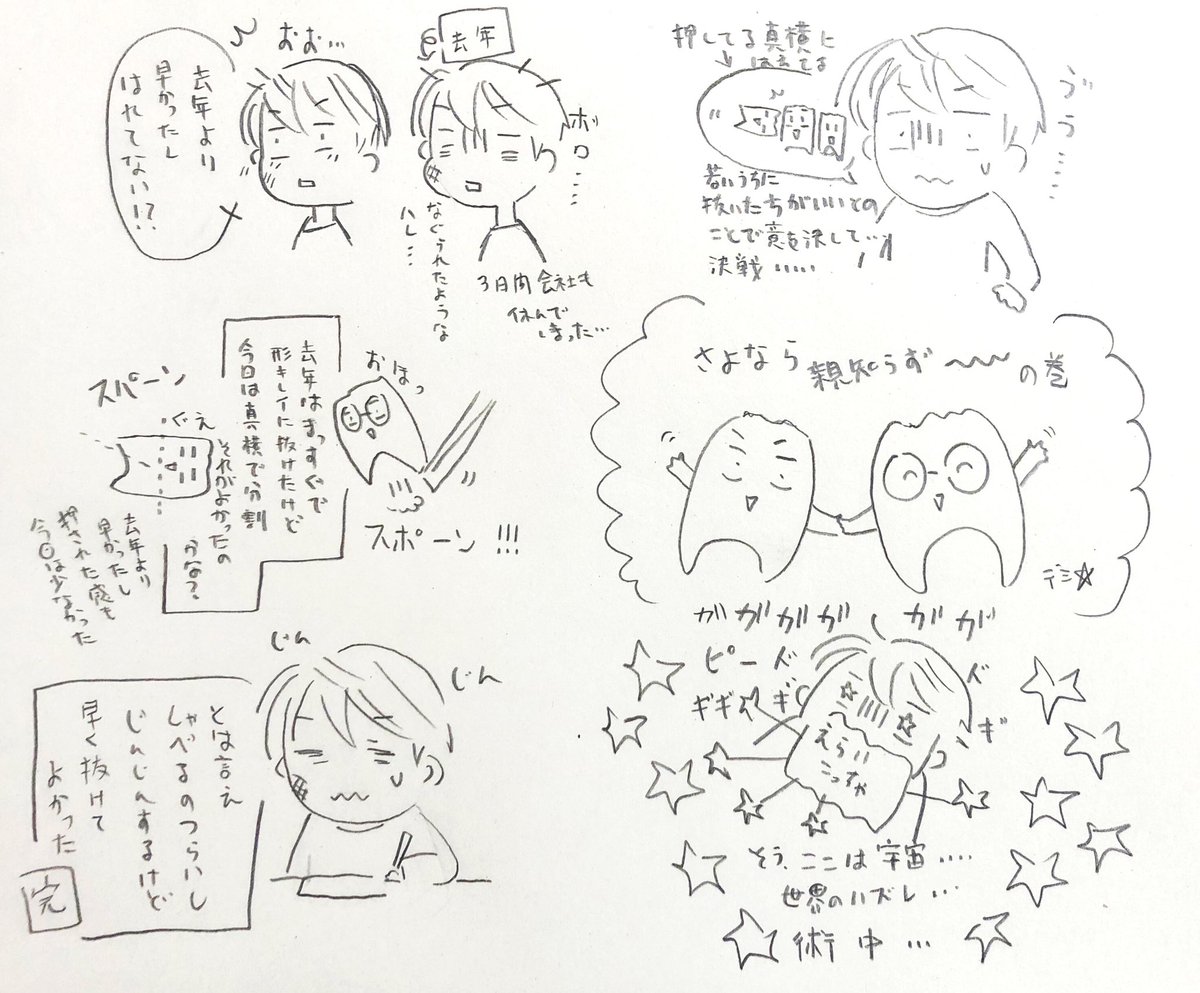 押してる真横に
はえてる
ゔゔ……
若いうちに
抜いたちがいいとの
ことで意を決して…
決戦……
さよなら
親知らず〜〜〜の巻
デシ☆
ガガガガ
ガガ
ピード
ギギ
えらい
こっちゃ
そう、ここは宇宙….
世界のハズレ…
術中…
去年
ボロ….
なぐられたような
ハレ…
3日間会社も
休んで
しまった…
おお…
去年より
早かったし
はれてない!?
おほっ
スポーン!!!
去年はまっすぐで
形キレイに抜けたけど
今日は真横で分割
それがよかったの
かな?
スパーン
ぐえ
去年より
早かったし
押された感も
今日は少なかった
じん
じん
とは言え
しゃべるのつらいし
じんじんするけど
早く抜けて
よかった
完